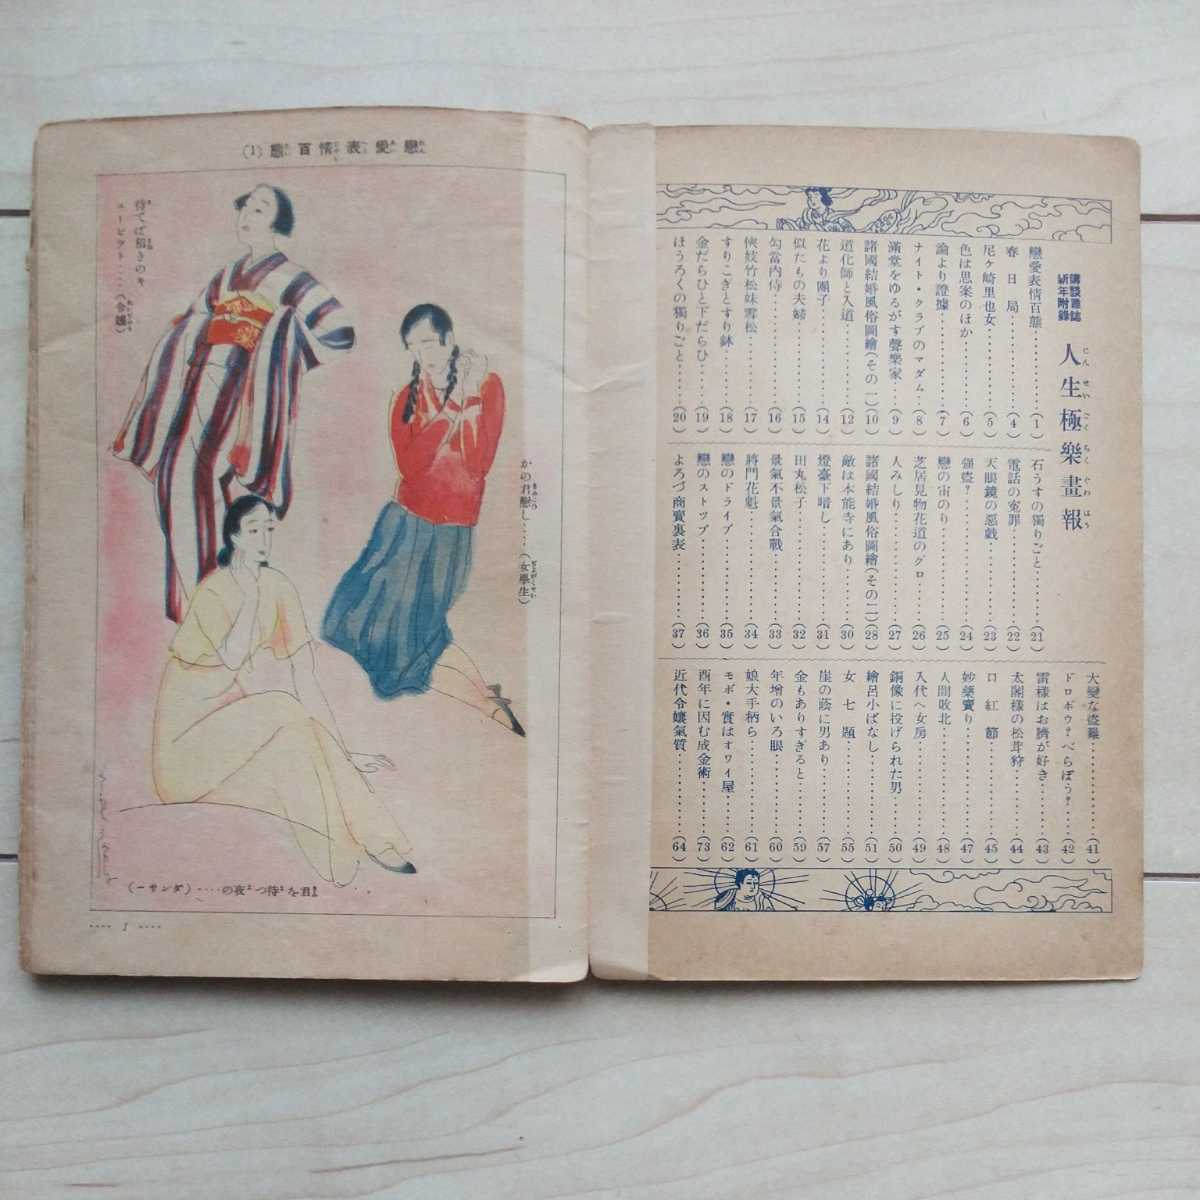 講談雜誌
新年附錄
人生極樂畫報
じんせいごくらくぐわほう
戀愛表情百態‥‥‥(1)
春日局‥‥‥(4)
尼ケ崎里也女‥‥‥(5)
色は思案のほか‥‥‥(6)
論より證據‥‥‥(7)
ナイト・クラブのマダム‥‥‥(8)
滿堂をゆるがす聲樂家‥‥‥(9)
諸國結婚風俗圖繪(その一)(10)
道化師と入道‥‥‥(12)
花より團子‥‥‥(14)
似たもの夫婦‥‥‥(15)
勾當內侍‥‥‥(16)
俠妓竹松妹雪松‥‥‥(17)
すりこぎとすり鉢‥‥‥(18)
金だらひと下だらひ‥‥‥(19)
ほうろくの獨りごと‥‥‥(20)
石うすの獨りごと‥‥‥(21)
電話の寃罪‥‥‥(22)
天眼鏡の惡戯‥‥‥(23)
強盜?‥‥‥(24)
戀の宙のり‥‥‥(25)
芝居見物花道のグロ‥‥‥(26)
人みしり‥‥‥(27)
諸國結婚風俗圖繪(その二)(28)
敵は本能寺にあり‥‥‥(30)
燈臺下暗し‥‥‥(31)
田丸松子‥‥‥(32)
景氣不景氣合戰‥‥‥(33)
將門花魁‥‥‥(34)
戀のドライブ‥‥‥(35)
戀のストップ‥‥‥(36)
よろづ商賣裏表‥‥‥(37)
大變な盜難‥‥‥(41)
ドロボウ?べらぼう?‥‥‥(42)
雷樣はお臍が好き‥‥‥(43)
太閤樣の松茸狩‥‥‥(44)
口紅節‥‥‥(45)
妙藥賣り‥‥‥(47)
人間敗北‥‥‥(48)
入代へ女房‥‥‥(49)
銅像に投げられた男‥‥‥(50)
繪呂小ばなし‥‥‥(51)
女七題‥‥‥(55)
崖の蔭に男あり‥‥‥(57)
金もありすぎると‥‥‥(59)
年增のいろ眼‥‥‥(60)
娘大手柄ら‥‥‥(61)
モボ・實はオワイ屋‥‥‥(62)
酉年に因む成金術‥‥‥(73)
近代令孃氣質‥‥‥(64)
戀愛表情百態(1)
待てば招きのキ
ユーピツト‥‥(令孃)
かの君戀し‥‥(女學生)
君を待つ夜の‥‥(ダンサー)
‥‥ 1 ‥‥